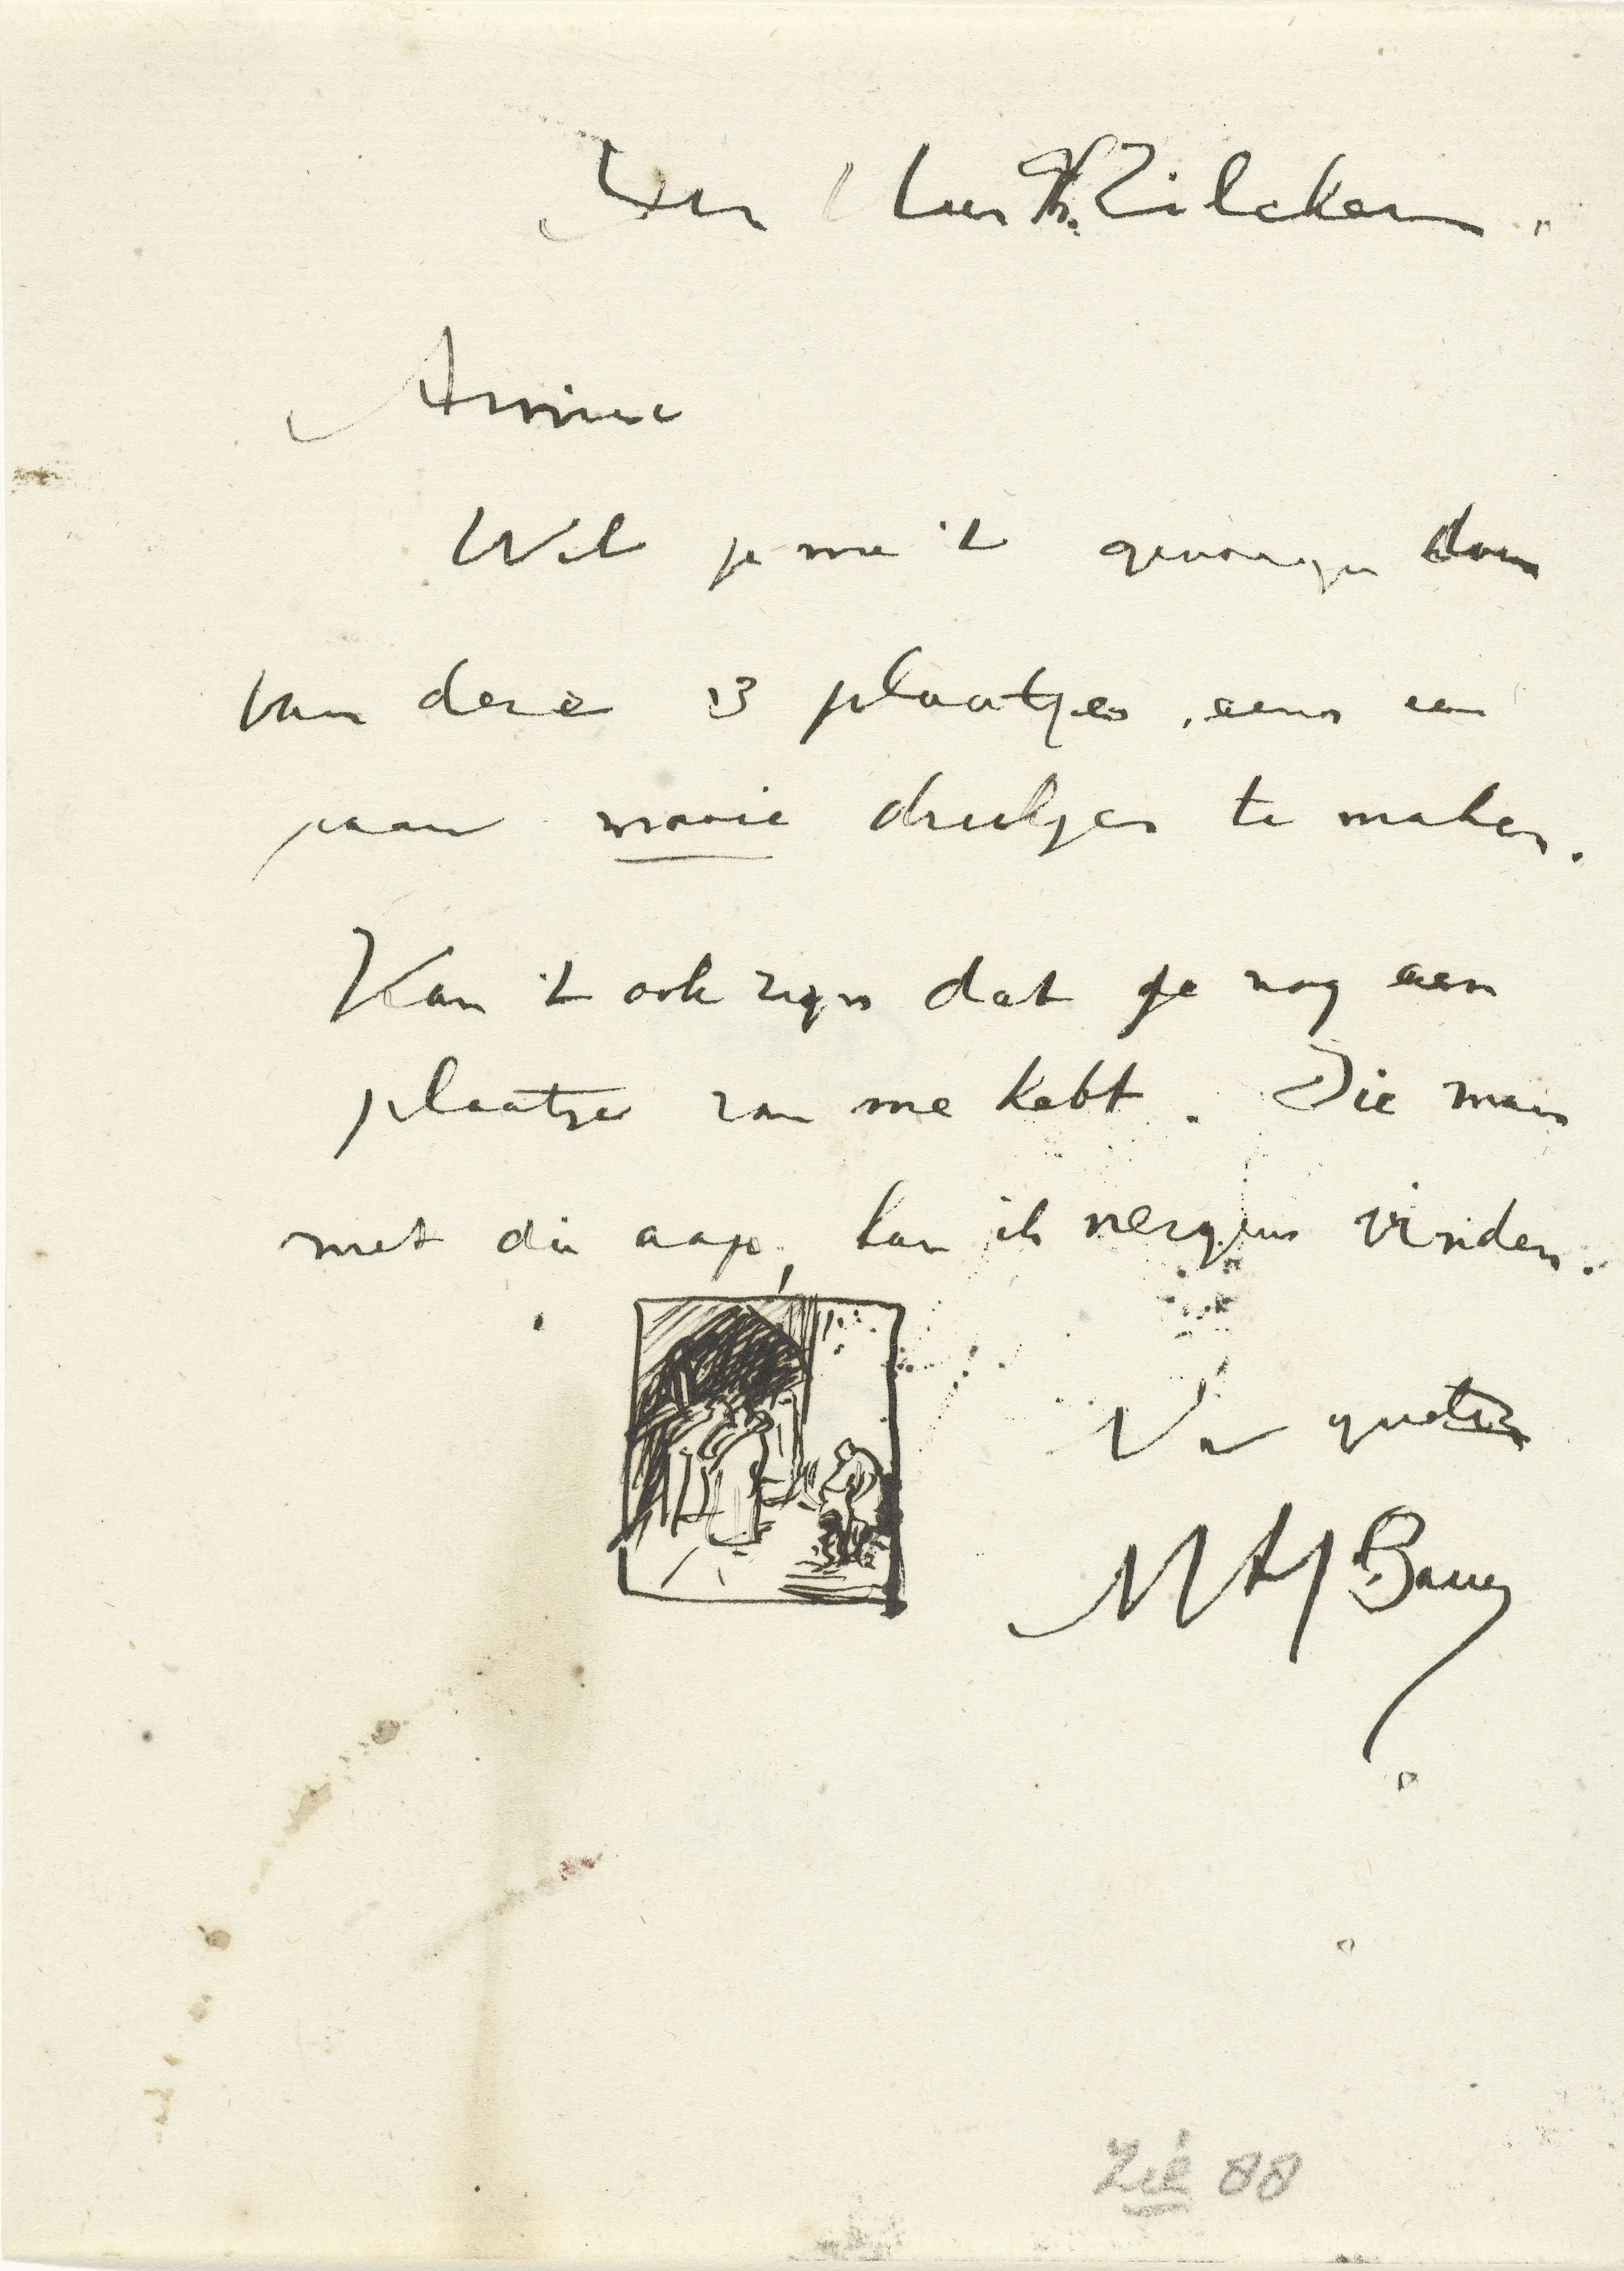 Den Heer Ph. Zilcken.
Amice
Wil je me 't genoegen doen
van deze 3 plaatjes, eens een
paar mooie drukjes te maken.
Kan 't ook zijn dat je nog een
plaatje van me hebt. Die man
met die aap, kan ik nergens vinden.
Na groeten
MAJ Bauer
Zie 88